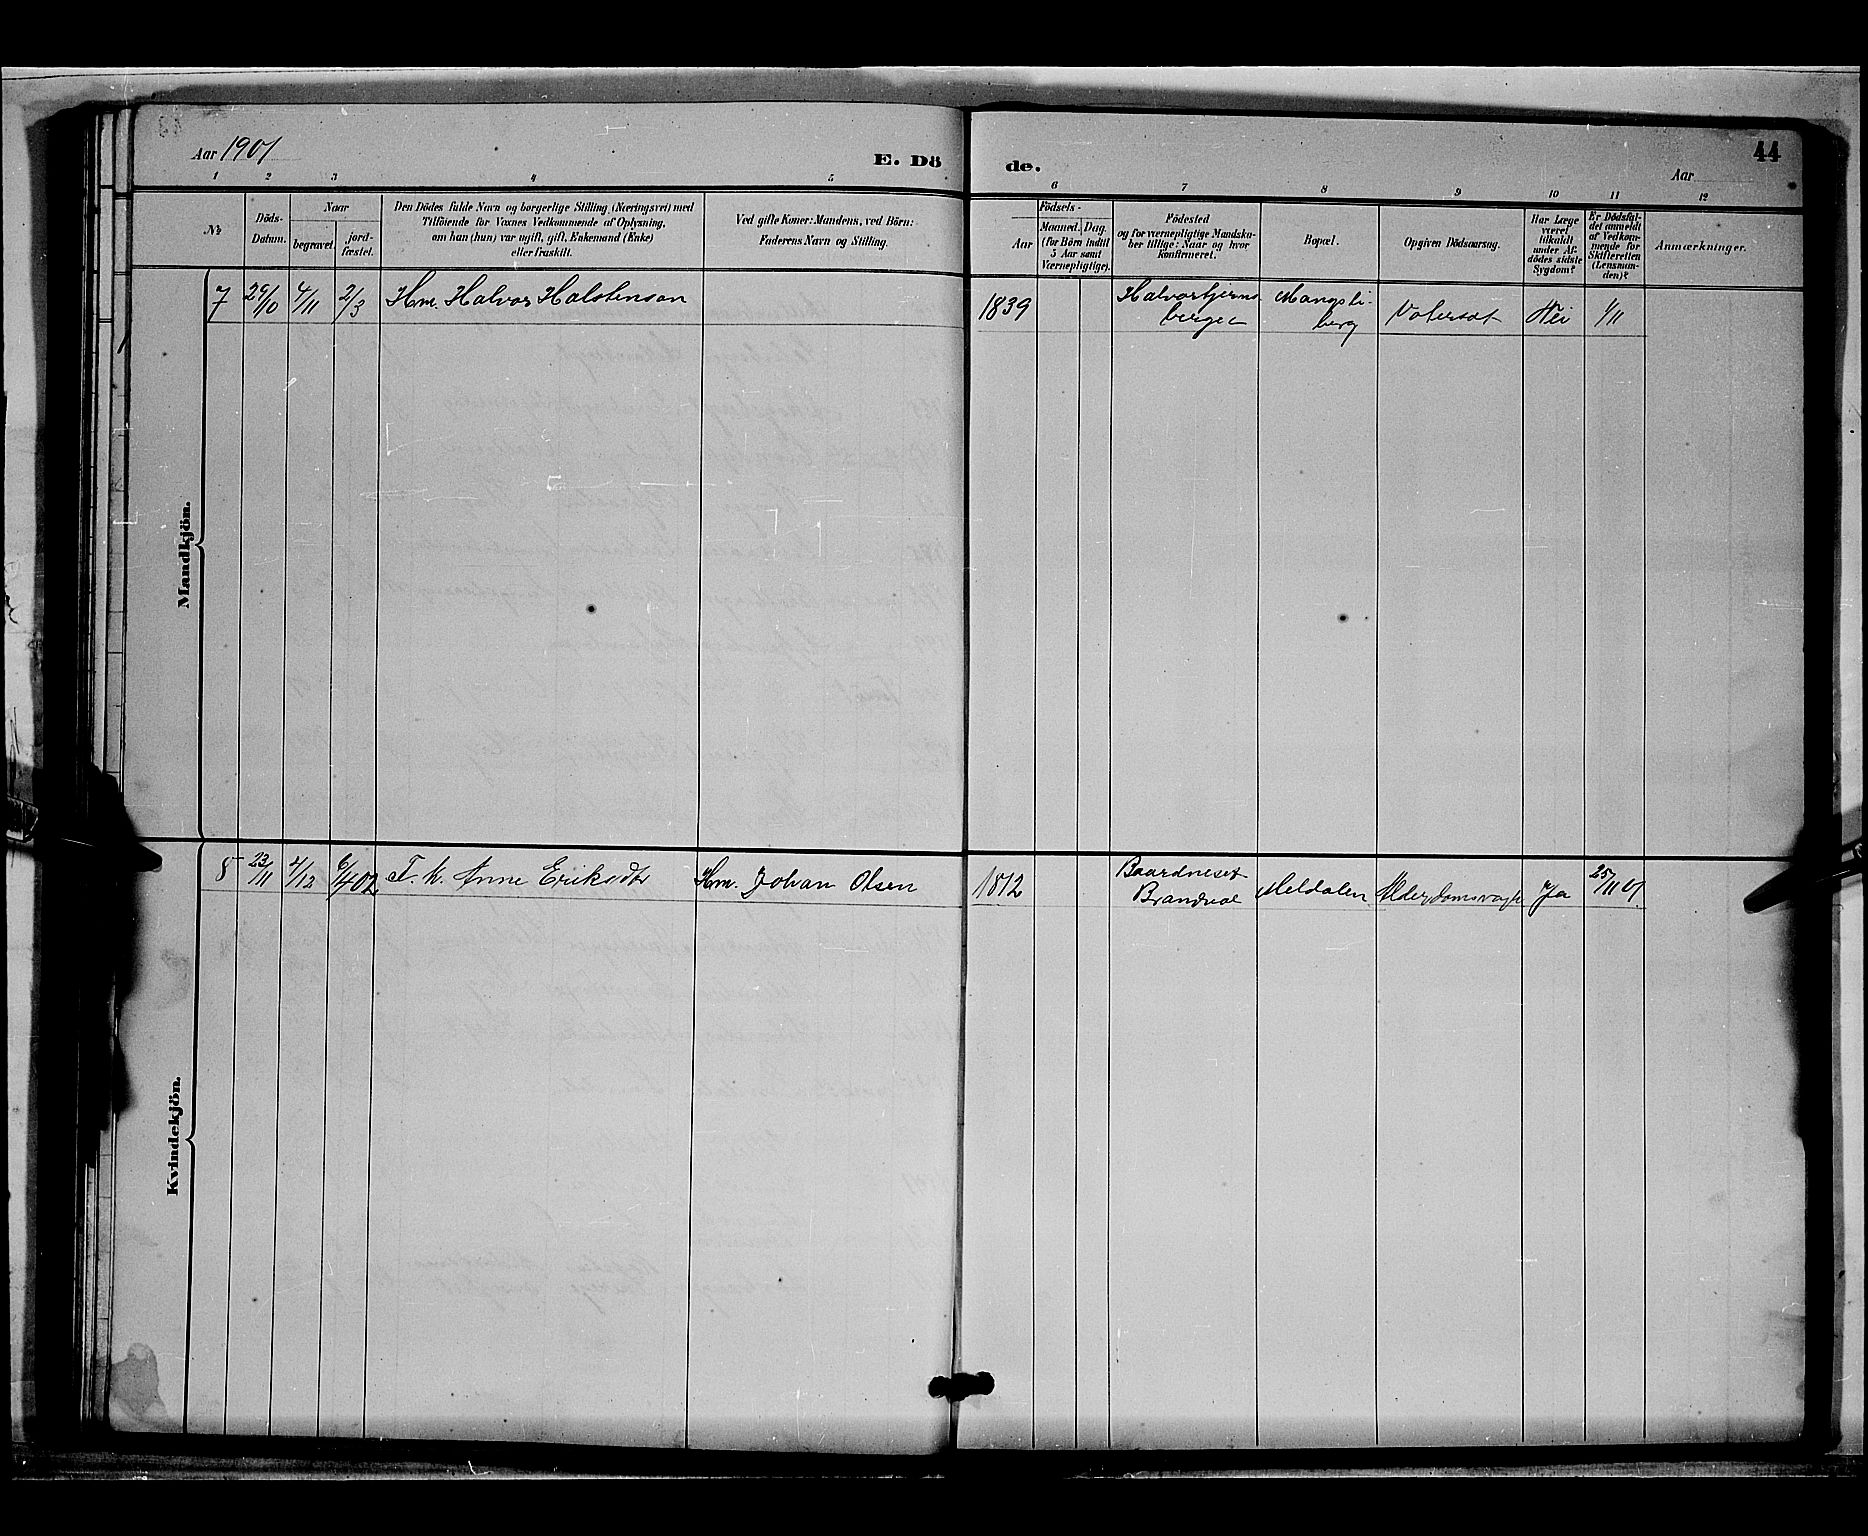 Aar 1901
E. Dö
de.
44
Aar
1 2 3 4 5 6 7 8 9 10 11 12
№
Döds-
Datum.
Naar
begravet.
jord-
fæstet.
Den Dödes fulde Navn og borgerlige Stilling (Næringsvei) med
Tilföiende for Voxnes Vedkommende af Oplysning,
om han (hun) var ugift, gift, Enkemand (Enke)
eller fraskilt.
Ved gifte Koner: Mandens, ved Börn:
Faderens Navn og Stilling.
Födsels-
Aar
Maaned.
Dag.
(for Börn indtil
5 Aar samt
Værnepligtige).
Födested
og for værnepligtige Mandska-
ber tillige: Naar og hvor
konfirmeret.
Bopæl.
Opgiven Dödsaarsag.
Har Læge
været
tilkaldt
under Af-
dödes sidste
Sygdom?
Er Dödsfal-
det anmeldt
af Vedkom-
mende for
Skifteretten
(Lensman-
den)?
Anmærkninger.
Mandkjön.
7 29/10 4/11 2/3 Hm. Halvor Halstensen 1839 Halvorstjerns-
bergen
Mangsli-
berg
Vatersot Nei 1/11
Kvindekjön.
8 23/11 4/12 6/1 402 F. k. Anne Eriksdtr Hm. Johan Olsen 1812 Baardneset
Brandval
Meldalen Alderdomsvagh Ja 25/11 01.